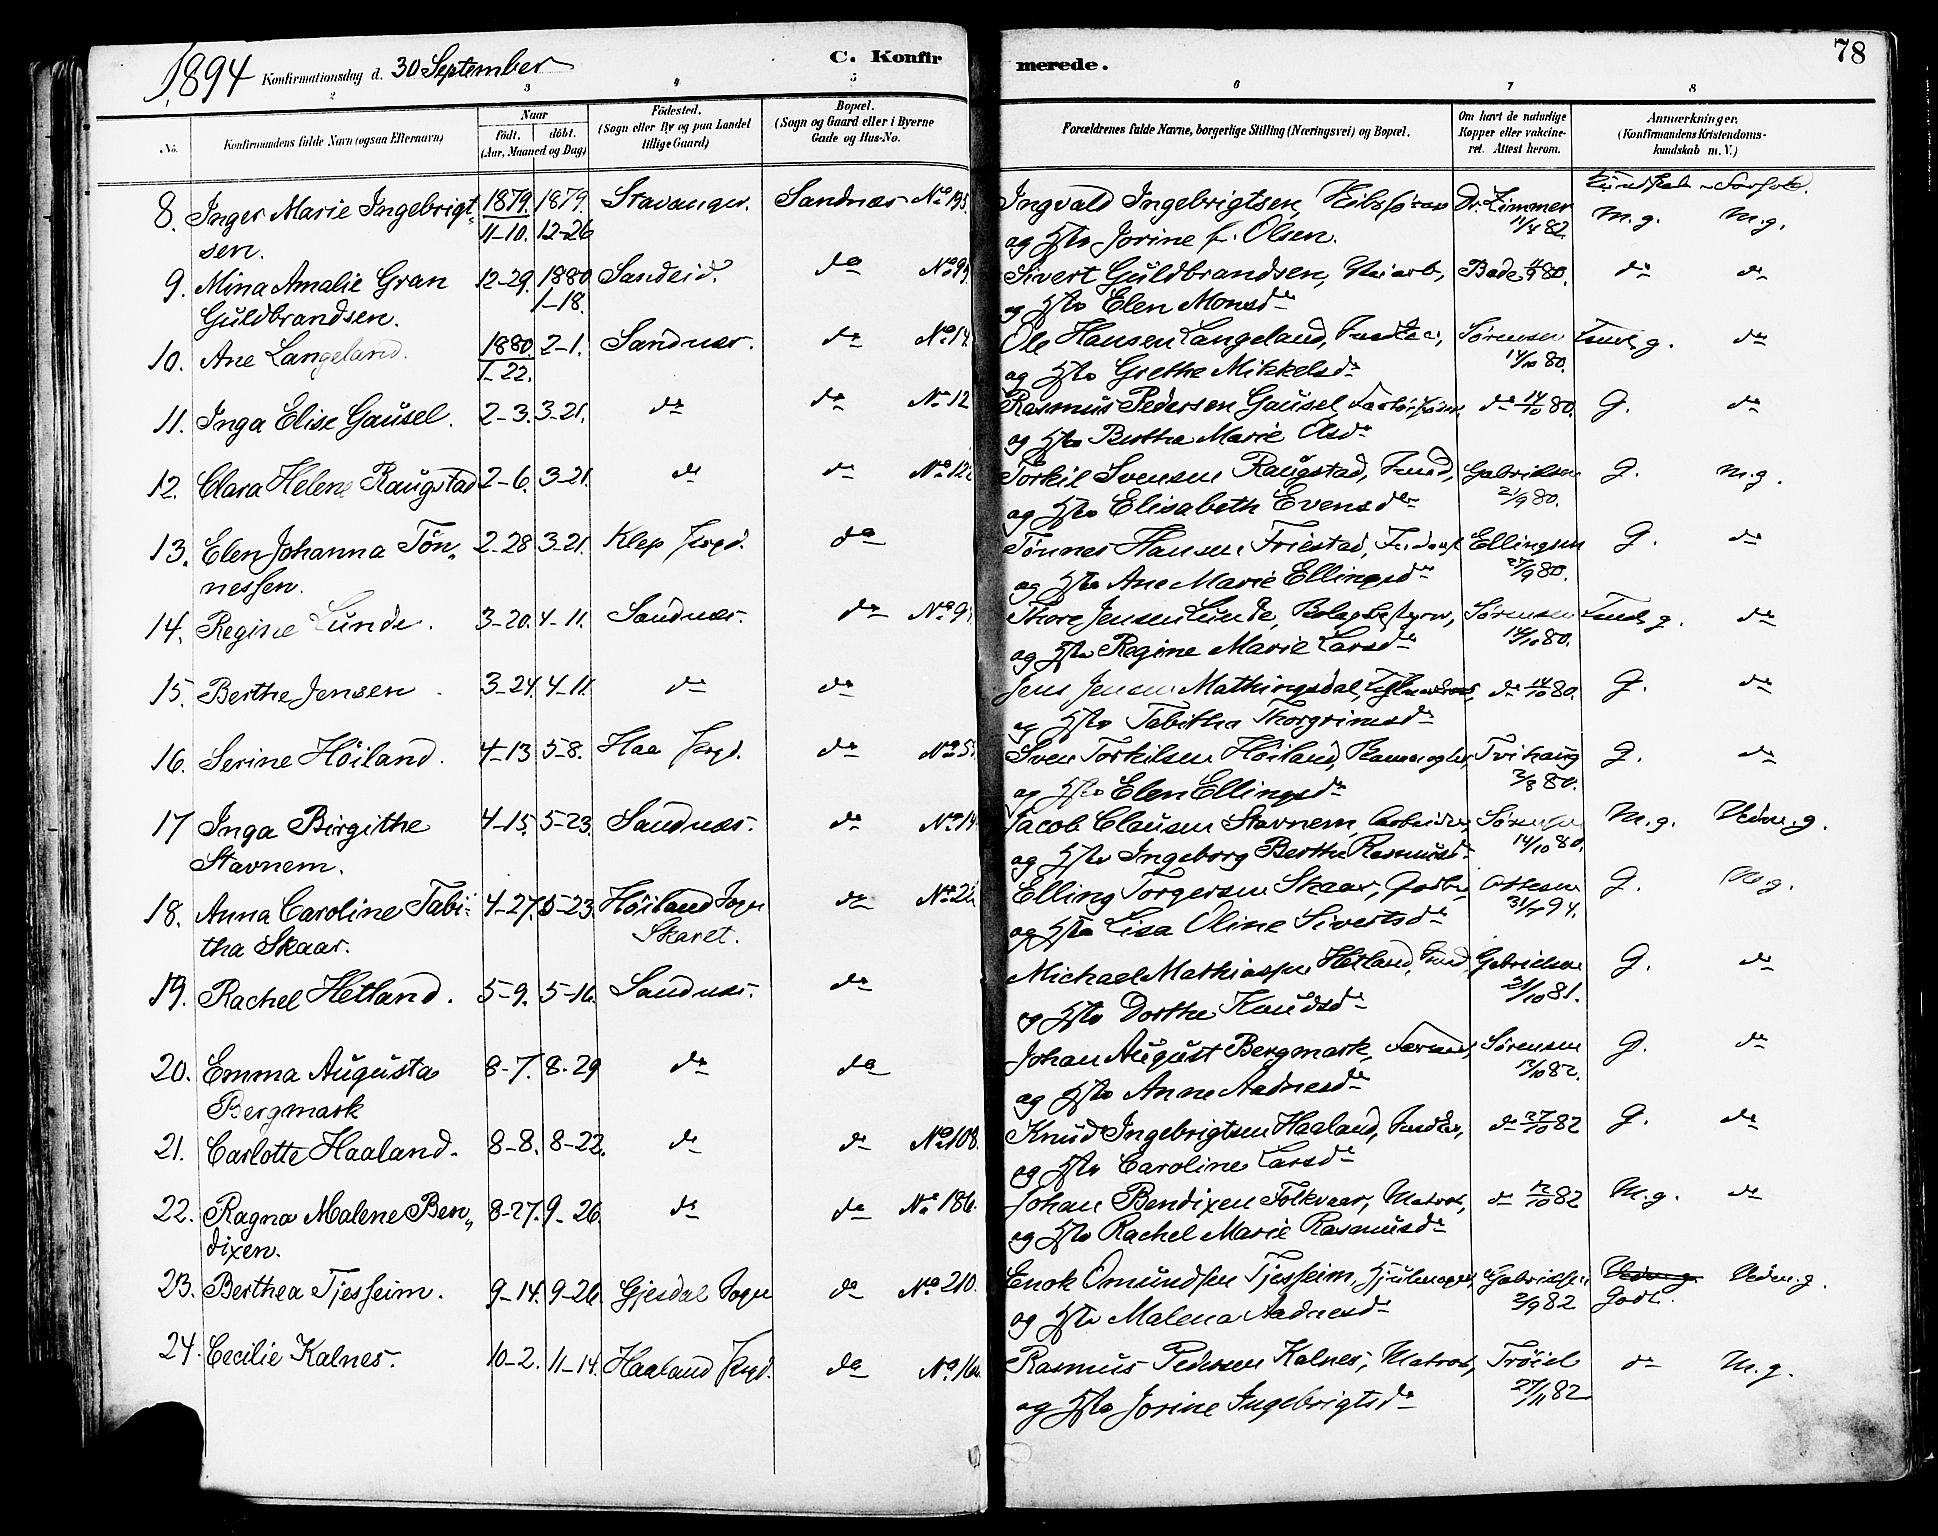 1894 Konfirmationsdag d. 30 September C. Konfirmerede. 78
2 3 4 5 6 7 8
No. Konfirmandens fulde Navn (ogsaa Efternavn) Naar født. døbt. (Aar, Maaned og Dag) Fødested. (Sogn eller By og paa Landet tillige Gaard) Bopæl. (Sogn og Gaard eller i Byerne Gade og Hus-No. Forældrenes fulde Navne, borgerlige Stilling (Næringsvei) og Bopæl. Om havt de naturlige Kopper eller vakcineret. Attest herom. Anmærkninger. (Konfirmandens Kristendomskundskab m. V.)
8. Inger Marie Ingebrigt- 1879. 1879. Stavanger. Sandnæs No 195. Ingvald Ingebrigtsen, Dr. Zimmer M.g. M.g.
sen. 11-10. 12-26 og Hstr Jorine f. Olsen. 11/4 82.
9. Mina Amalie Gran 12-29. 1880 Sandeid. do Sivert Guldbrandsen, do do
Guldbrandsen. 1-18. og Hstr Elen Monsdr
10. Ane Langeland. 1880. 2-1. Sandnæs. do No 14 Ole Hansen Langeland, Sørensen do
1-22. og Hstr Grethe Mikkelsdr 14/10 80.
11. Inga Elise Gausel. 2-3. 3-21. do do No 12 Rasmus Pedersen Gausel, do 14/10 80. G. do
og Hstr Berthe Marie Olsdr
12. Clara Helene Raugstad 2-6. 3-21. do do No 12 Torkil Svensen Raugstad, Gabrielsen G. M.g.
og Hstr Elisabeth Evensdr 2/9 80.
13. Elen Johanna Tøn- 2-28 3-21. Klep Prgd. do Tønnes Hansen Friestad, Ellingsen G. do
nessen. og Hstr Ane Marie Ellingsdr 27/9 80.
14. Regine Lunde. 3-20. 4-11. Sandnæs. do No 9 Thore Jensen Lunde, Bolagsbestyrer, Sørensen do
og Hstr Regine Marie Larsdr 14/10 80.
15. Berthe Jensen 3-24. 4-11. do do Jens Jensen Mathingsdal, do 14/10 80. G. do
og Hstr Tabitha Thorgrimsdr
16. Serine Høiland. 4-13. 5-8. Haa Prgd. do No 5 Sven Torkilsen Høiland, Tvihaug G. do
og Hstr Elen Ellingsdr 2/8 80.
17 Inga Birgithe 4-15. 5-23. Sandnæs. do No 14 Jacob Clausen Stavnem, Arbeider, Sørensen M.g. Udm.g.
Stavnem. og Hstr Ingeborg Berthe Rasmusdr 14/10 80.
18. Anna Caroline Tabi- 4-27. 5-23. Høiland Sogn do No 22 Elling Torgersen Skaar, G. M.g.
tha Skaar. Skaret. og Hstr Lisa Oline Sivertsdr 31/7 94.
19. Rachel Hetland. 5-9. 5-16. Sandnæs. do Michael Mathiassen Hetland, Gabrielsen G. do
og Hstr Dorthe Knudsdr 21/10 81.
20. Emma Augusta 8-7. 8-29 do do Johan August Bergmark, Sørensen G. do
Bergmark og Hstr Anne Aadnesdr
21. Carlotte Haaland. 8-8. 8-22. do do No 108. Knud Ingebrigtsen Haaland, do 27/10 82 G. do
og Hstr Caroline Larsdr
22. Ragna Malene Ben- 8-27. 9-26. do do No 186. Johan Bendixen Folkvær, Matros, do 12/10 82 M.g. do
dixen. og Hstr Rachel Marie Rasmusdr
23. Berthea Tjessheim. 9-14. 9-26. Gjesdal Sogn do No 210. Enok Omundsen Tjessheim, Hjulmager, Gabrielsen Udm.g. Udm.g.
og Hstr Malena Aadnesdr 2/9 82 Godt.
24. Cecilie Kalnes. 10-2. 11-14. Haaland Prgd. do No 16 Rasmus Pedersen Kalnes, Matros, Trøiel do M.g.
og Hstr Jorine Ingebrigtsdr 27/11 82